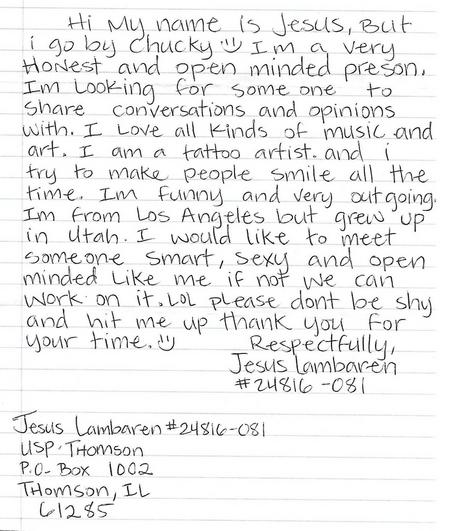 Hi My name is Jesus, But
i go by Chucky I'm a very
Honest and open minded preson.
Im Looking for some one to
share conversations and opinions
with. I Love all kinds of music and
art. I am a tattoo artist. and i
try to make people smile all the
time. Im funny and very outgoing.
Im from Los Angeles but grew up
in Utah. I would like to meet
someone smart, sexy and open
minded Like me if not we can
work on it. LOL please dont be shy
and hit me up thank you for
your time.
Respectfully,
Jesus Lambaren
#24816-081
Jesus Lambaren #24816-081
USP. Thomson
P.O. Box 1002
Thomson, IL
61285